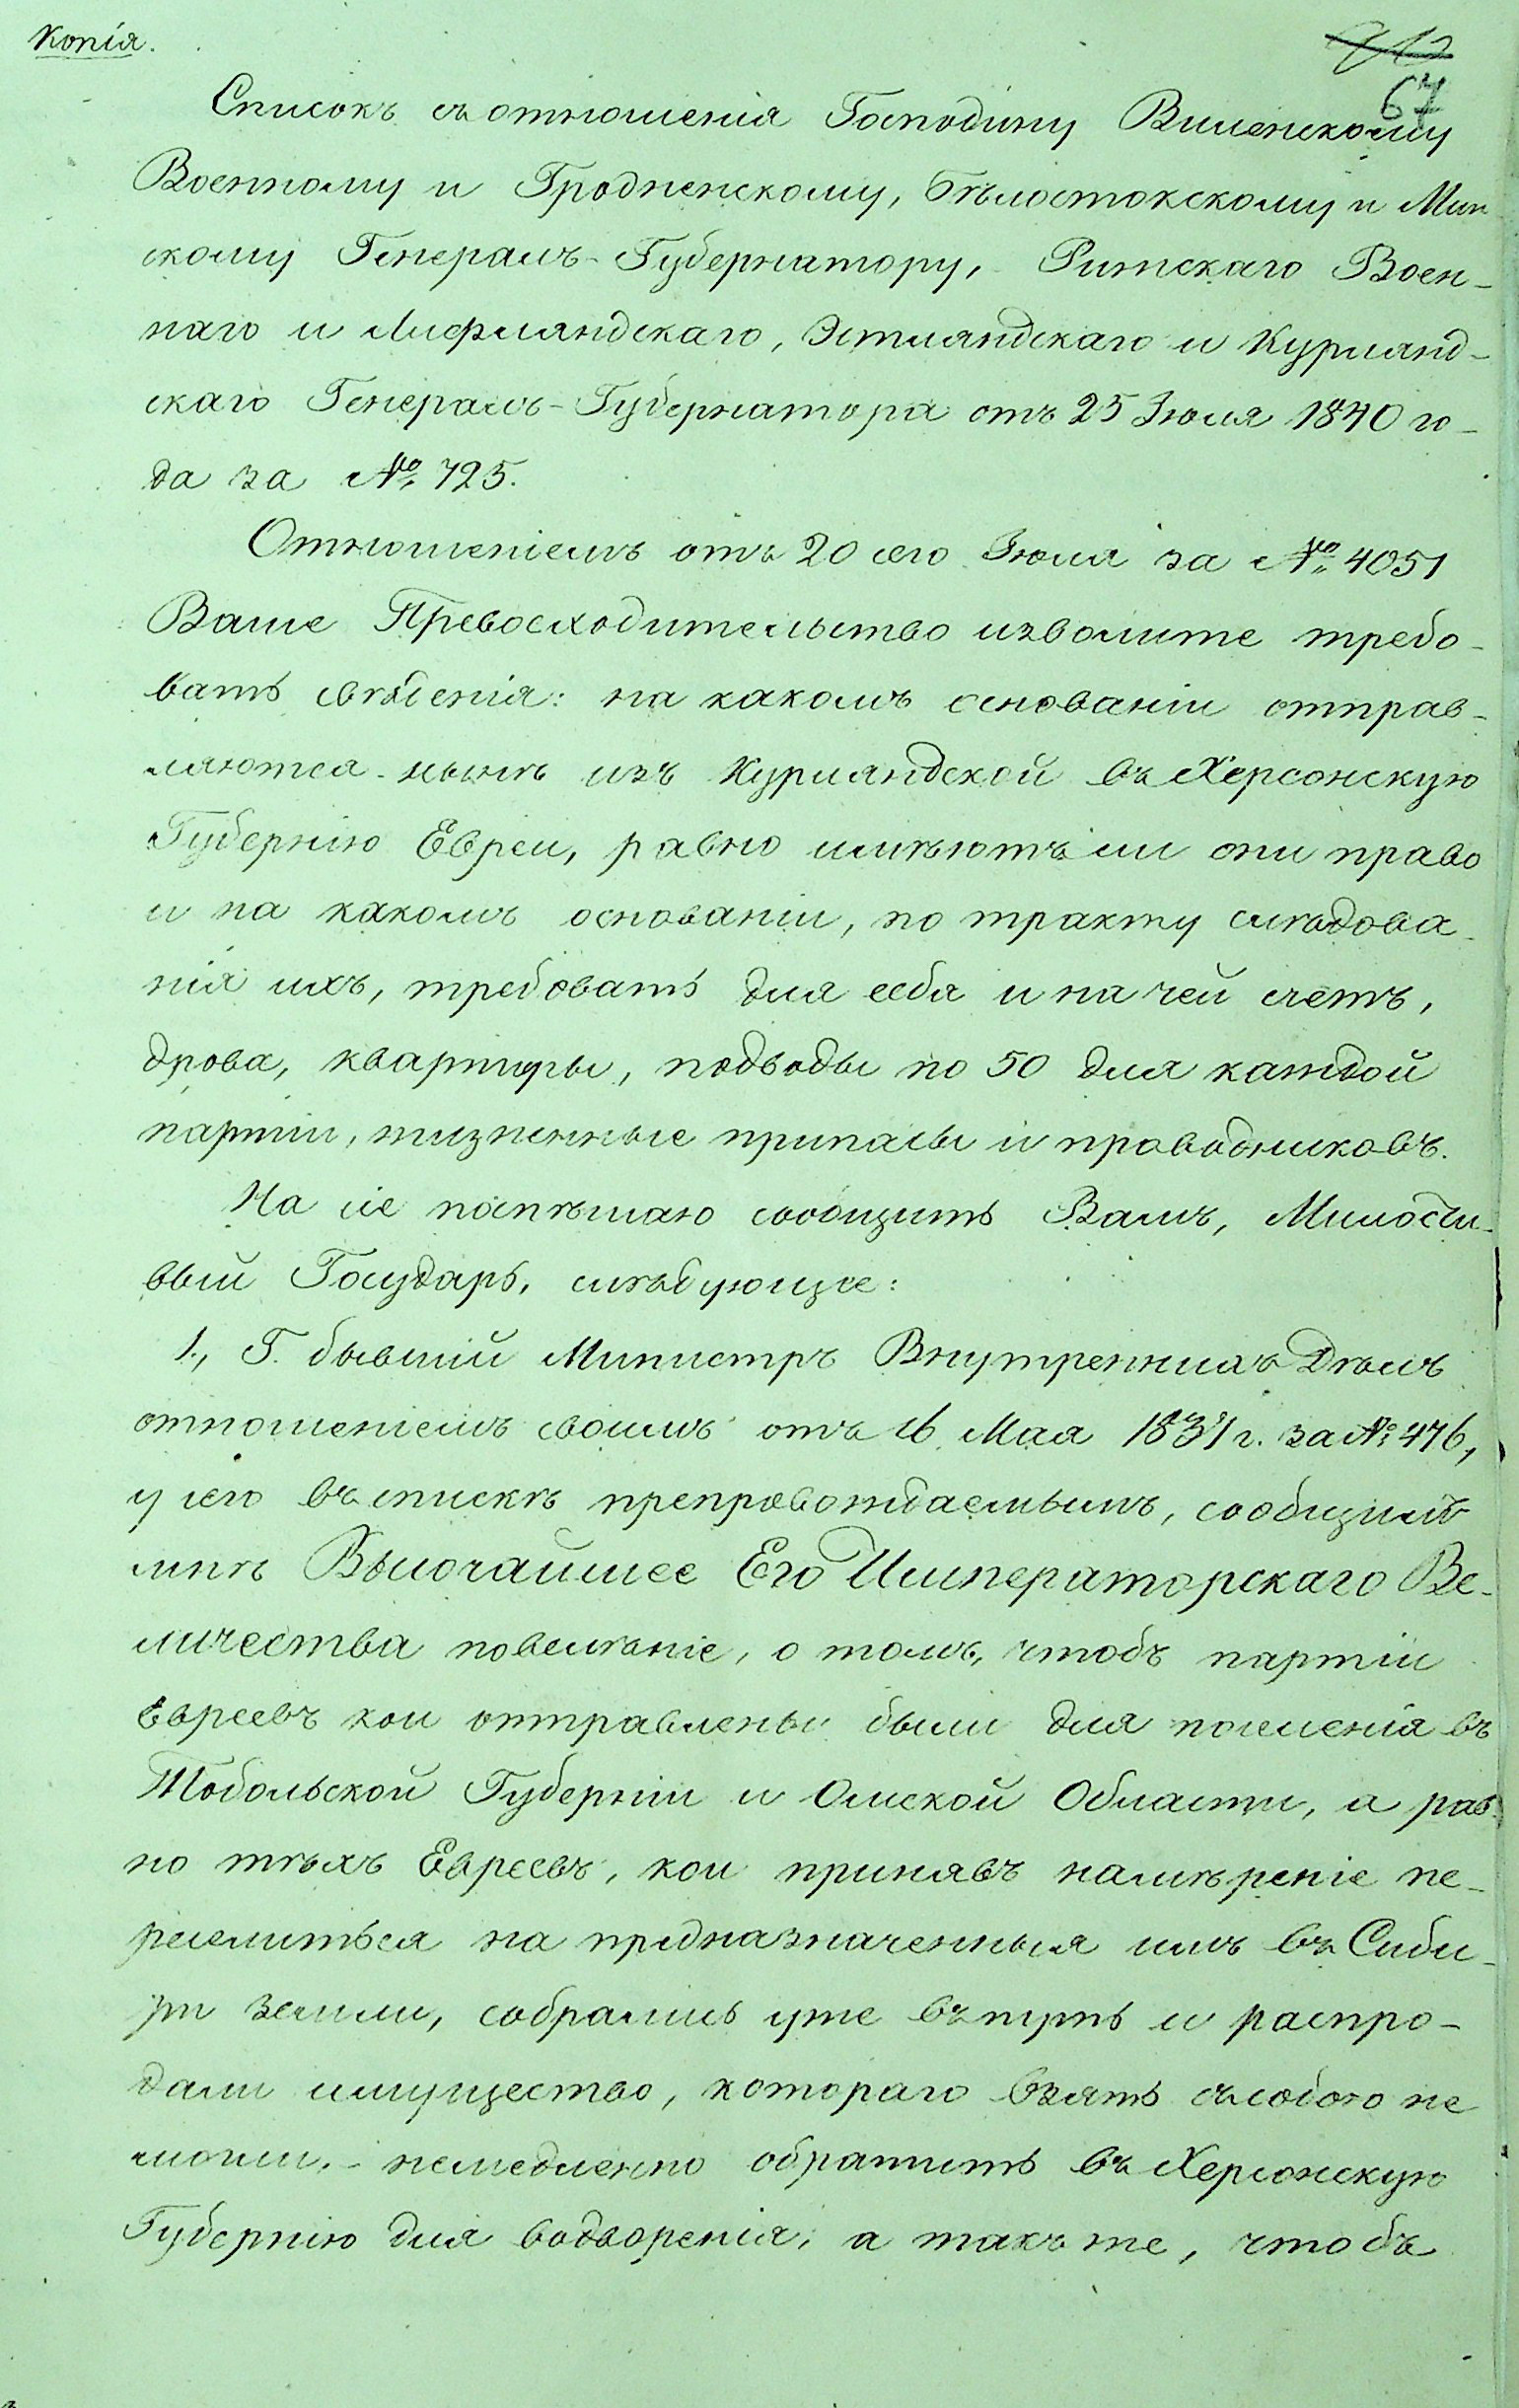 Копія.
67
Списокъ съ отношенія Господину Виленскому
Военному и Гродненскому, Бѣлостокскому и Мин
скому Генералъ-Губернатору, Рижскаго Воен-
наго и Лифляндскаго, Эстляндскаго и Курлянд-
скаго Генералъ-Губернатора отъ 25 Іюля 1840 го-
да за № 725.
Отношеніемъ отъ 20 сего Іюля за № 4051
Ваше Превосходительство изволите требо-
вать свѣденія: на какомъ основаніи отправ-
ляются нынѣ изъ Курляндской въ Херсонскую
Губернію Евреи, равно имѣютъ ли они право
и на какомъ основаніи, по тракту слѣдова-
нія ихъ, требовать для себя и на чей счетъ,
дрова, квартиры, подводы по 50 для каждой
партіи, жизненные припасы и проводниковъ.
На сіе поспѣшаю сообщить Вамъ, Милости-
вый Государь, слѣдующее:
1., Г. бывшій Министръ Внутреннихъ Дѣлъ
отношеніемъ своимъ отъ 16 Мая 1837 г. за № 476,
у сего въ спискѣ препровождаемымъ, сообщилъ
мнѣ Высочайшее Его Императорскаго Ве-
личества повелѣніе, о томъ, чтобъ партіи
Евреевъ кои отправлены были для поселенія въ
Тобольской Губерніи и Омской Области, а рав
но тѣхъ Евреевъ, кои принявъ намѣреніе пе-
реселиться на предназначенныя имъ въ Сиби-
ри земли, собрались уже въ путь и распро-
дали имущество, котораго взять съ собою не
могли,- немедленно обратить въ Херсонскую
Губернію для водворенія; а такъ же, чтобъ